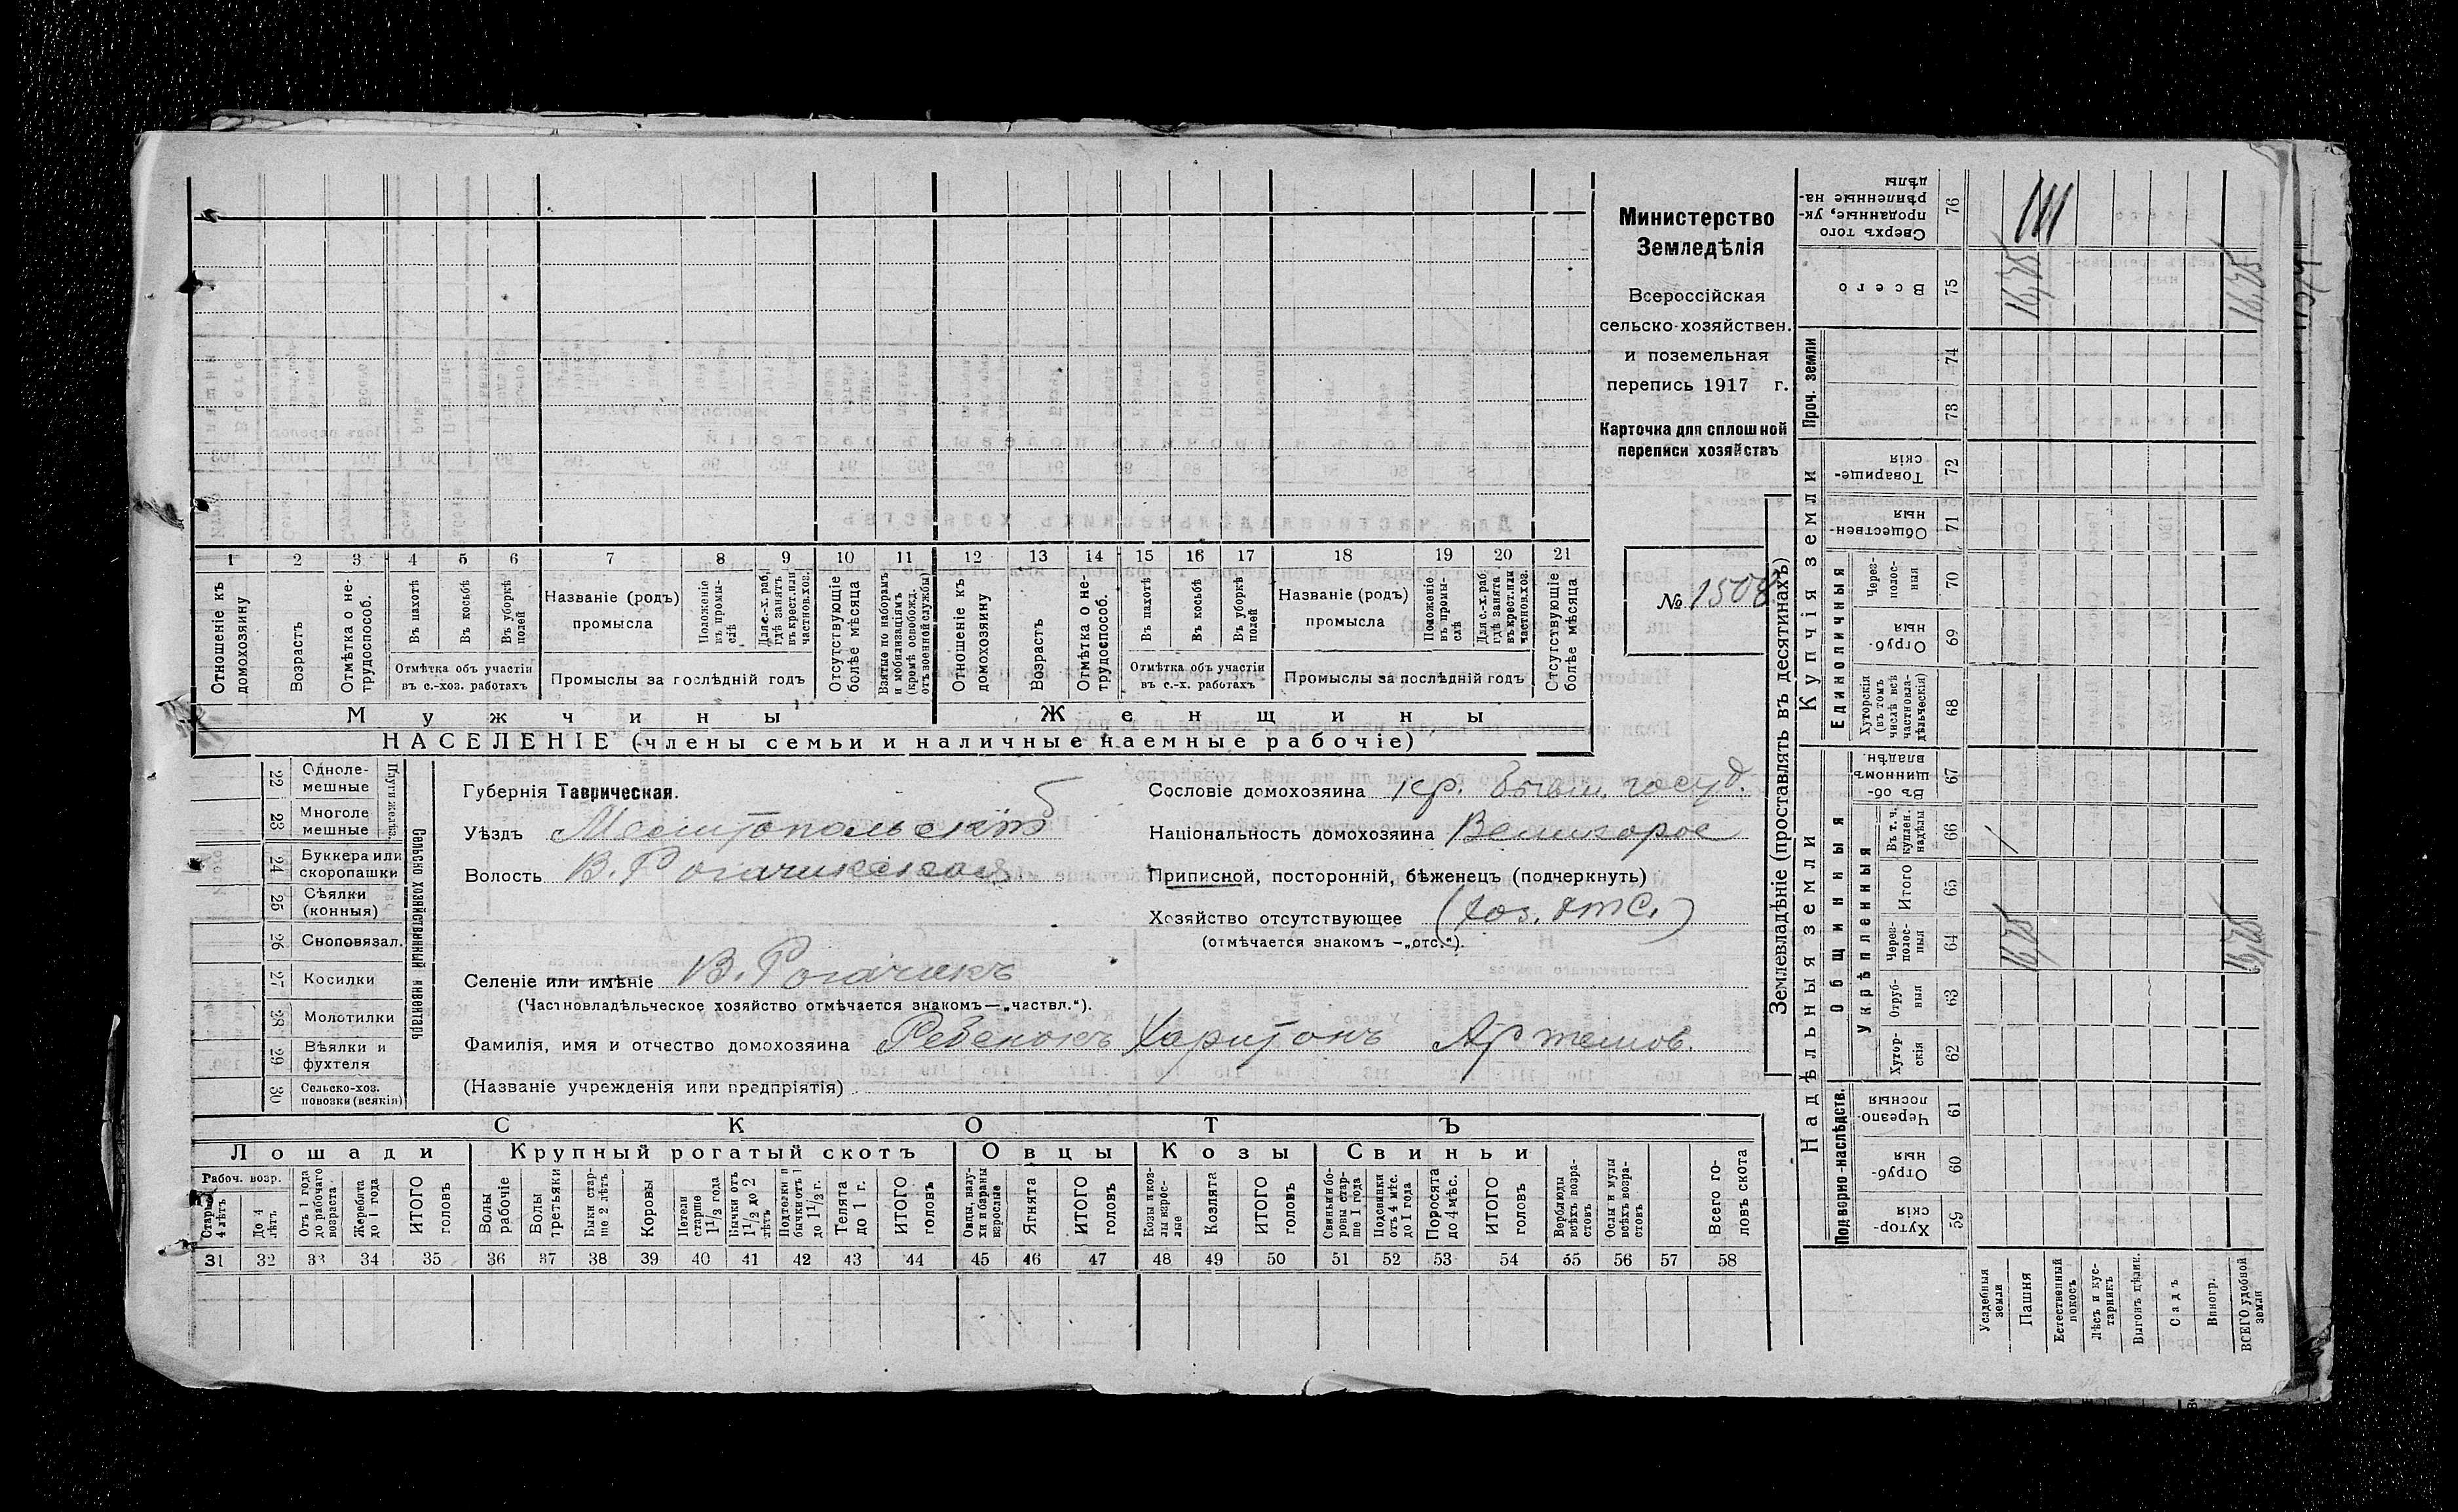 Министерство
Земледѣлія
Всероссійская
сельско-хозяйствен.
и поземельная
перепись 1917 г.
Карточка для сплошной
переписи хозяйствъ
№ 1508
1 2 3 4 5 6 7 8 9 10 11 12 13 14 15 16 17 18 19 20 21
Отношеніе къ домохозяину
Возрастъ
Отмѣтка о не-трудоспособ.
Въ пахотѣ
Въ косьбѣ
Въ уборкѣ полей
Отмѣтка объ участіи
въ с.-хоз. работахъ
Названіе (родъ)
промысла
Положеніе въ промы-слѣ
Для с.-х. раб. гдѣ занятъ въ крест. или частнов. хоз.
Промыслы за послѣдній годъ
Отсутствующіе болѣе мѣсяца
Взятые по наборамъ и мобилизаціямъ (кромѣ освобожд. отъ военной службы)
Отношеніе къ домохозяину
Возрастъ
Отмѣтка о не-трудоспособ.
Въ пахотѣ
Въ косьбѣ
Въ уборкѣ полей
Отмѣтка объ участіи
въ с.-х. работахъ
Названіе (родъ)
промысла
Положеніе въ промы-слѣ
Для с.-х. раб. гдѣ занята въ крест. или частнов. хоз.
Промыслы за послѣдній годъ
Отсутствующіе болѣе мѣсяца
Мужчины
Женщины
НАСЕЛЕНІЕ (члены семьи и наличные наемные рабочіе)
22 Одноле-мешные
23 Многоле мешные
Плуги желѣз.
24 Буккера или скоропашки
25 Сѣялки (конныя)
26 Сноповязал.
27 Косилки
28 Молотилки
29 Вѣялки и фухтеля
30 Сельско-хоз. повозки (всякія)
Сельско хозяйственный инвентарь
Губернія Таврическая.
Уѣздъ Мелитопольскій
Волость В. Рогачикская
Селеніе или имѣніе В. Рогачикъ
(Частновладѣльческое хозяйство отмѣчается знакомъ—„частвл.“).
Фамилія, имя и отчество домохозяина Ребенокъ Харитонъ Артемов.
(Названіе учрежденія или предпріятія)
Сословіе домохозяина кр. бывш. госуд.
Національность домохозяина Великорос
Приписной, посторонній, бѣженецъ (подчеркнуть)
Хозяйство отсутствующее (хоз. отс.)
(отмѣчается знакомъ -„отс.“).
СКОТЪ
Лошади
Крупный рогатый скотъ
Овцы
Козы
Свиньи
Рабоч. возр.
Старше 4 лѣтъ
До 4 лѣтъ
Отъ 1 года до рабочаго возраста
Жеребята до 1 года
ИТОГО головъ
Волы рабочіе
Волы третьяки
Быки стар-ше 2 лѣтъ
Коровы
Нетели старше 1 1/2 года
Бычки отъ 1 1/2 до 2 лѣтъ
Подтелки и бычки отъ 1 до 1 1/2 г.
Телята до 1 г.
ИТОГО головъ
Овцы, валу-хи и бараны взрослые
Ягнята
ИТОГО головъ
Козы и коз-лы взрос-лые
Козлята
ИТОГО головъ
Свиньи и бо-ровы стар-ше 1 года
Подсвинки отъ 4 мѣс. до 1 года
Поросята до 4 мѣс.
ИТОГО головъ
Верблюды всѣхъ возра-стовъ
Ослы и мулы всѣхъ возра-стовъ
Всего го-ловъ скота
31 32 33 34 35 36 37 38 39 40 41 42 43 44 45 46 47 48 49 50 51 52 53 54 55 56 57 58
Землевладѣніе (проставлять въ десятинахъ)
Надѣльныя земли
Купчія земли
Проч. земли
Подворно-наслѣдств.
Общинныя
Укрѣпленныя
Единоличныя
Хутор-скія 59
Отруб-ныя 60
Черезпо-лосныя 61
Хутор-скія 62
Отруб-ныя 63
Через-полос-ныя 64
Итого 65
Въ т. ч. куплен. надѣлы 66
Въ об-щинномъ владѣн. 67
Хуторскія (въ томъ числѣ всѣ частновла-дѣльческія) 68
Отруб-ныя 69
Через-полос-ныя 70
Обществен-ныя 71
Товарище-скія 72
73
74
Всего 75
Сверхъ того проданные, ук-рѣпленные на-дѣлы 76
Усадебныя земли
Пашня
Естественный покосъ
Лѣсъ и кус-тарникъ
Выгонъ дѣлин.
Садъ
Виногр.
ВСЕГО удобной земли